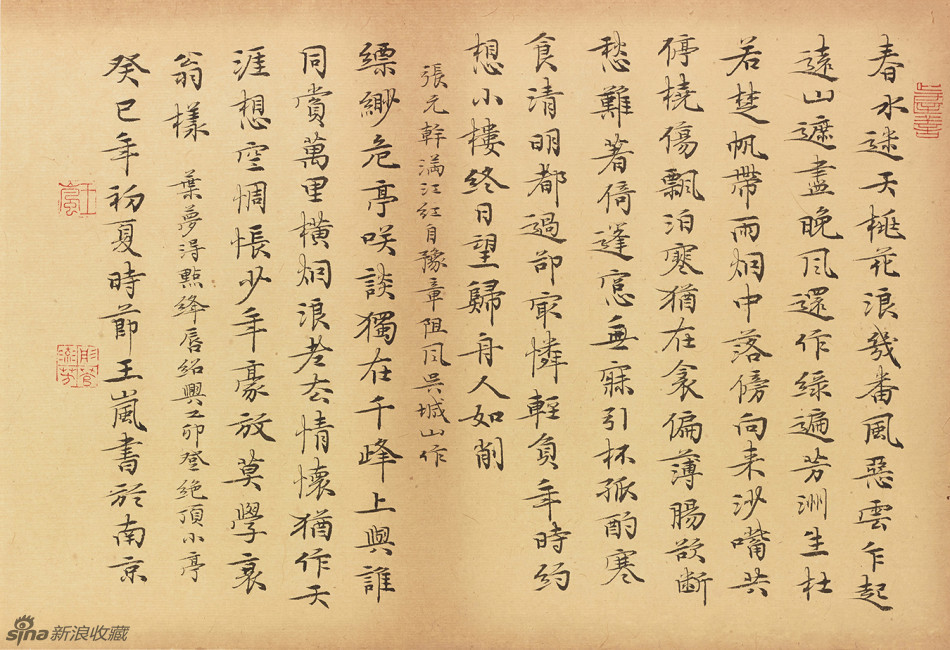 春水迷天桃花浪幾番風惡雲乍起
遠山遮盡晚風還作綠遍芳洲生杜
若楚帆帶雨烟中落傍向来沙嘴共
停橈傷飄泊寒猶在衾偏薄腸欲斷
愁難著倚蓬窓無寐引杯孤酌寒
食清明都過卻冣憐輕負年時約
想小樓終日望歸舟人如削
張元幹滿江紅自豫章阻風吳城山作
縹緲危亭咲談獨在千峰上與誰
同賞萬里橫烟浪老去情懷猶作天
涯想空惆悵少年豪放莫學衰
翁樣 葉夢得點絳唇紹興乙卯登絕頂小亭
癸巳年初夏時節王嵐書於南京
王嵐
sina新浪收藏